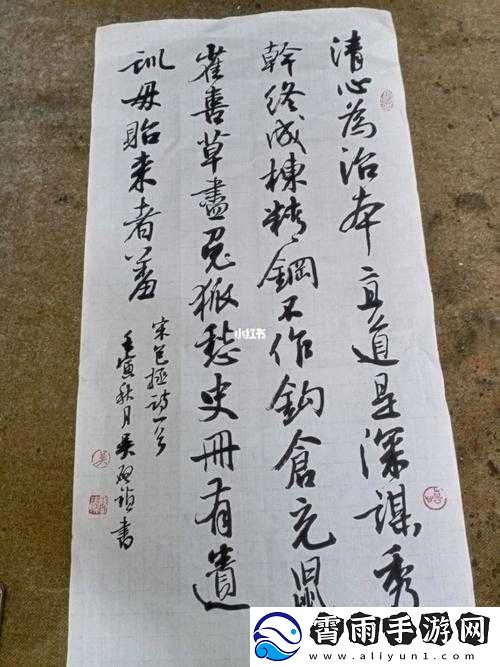 清心為治本直道是深謀秀
幹終成棟精鋼不作鈎倉充鼠
雀喜草盡兔狐愁史冊有遺
訓毋貽来者羞
宋包拯詩一首
壬寅秋月吳書
小红书
霄雨手游网
www.aliyun1.com